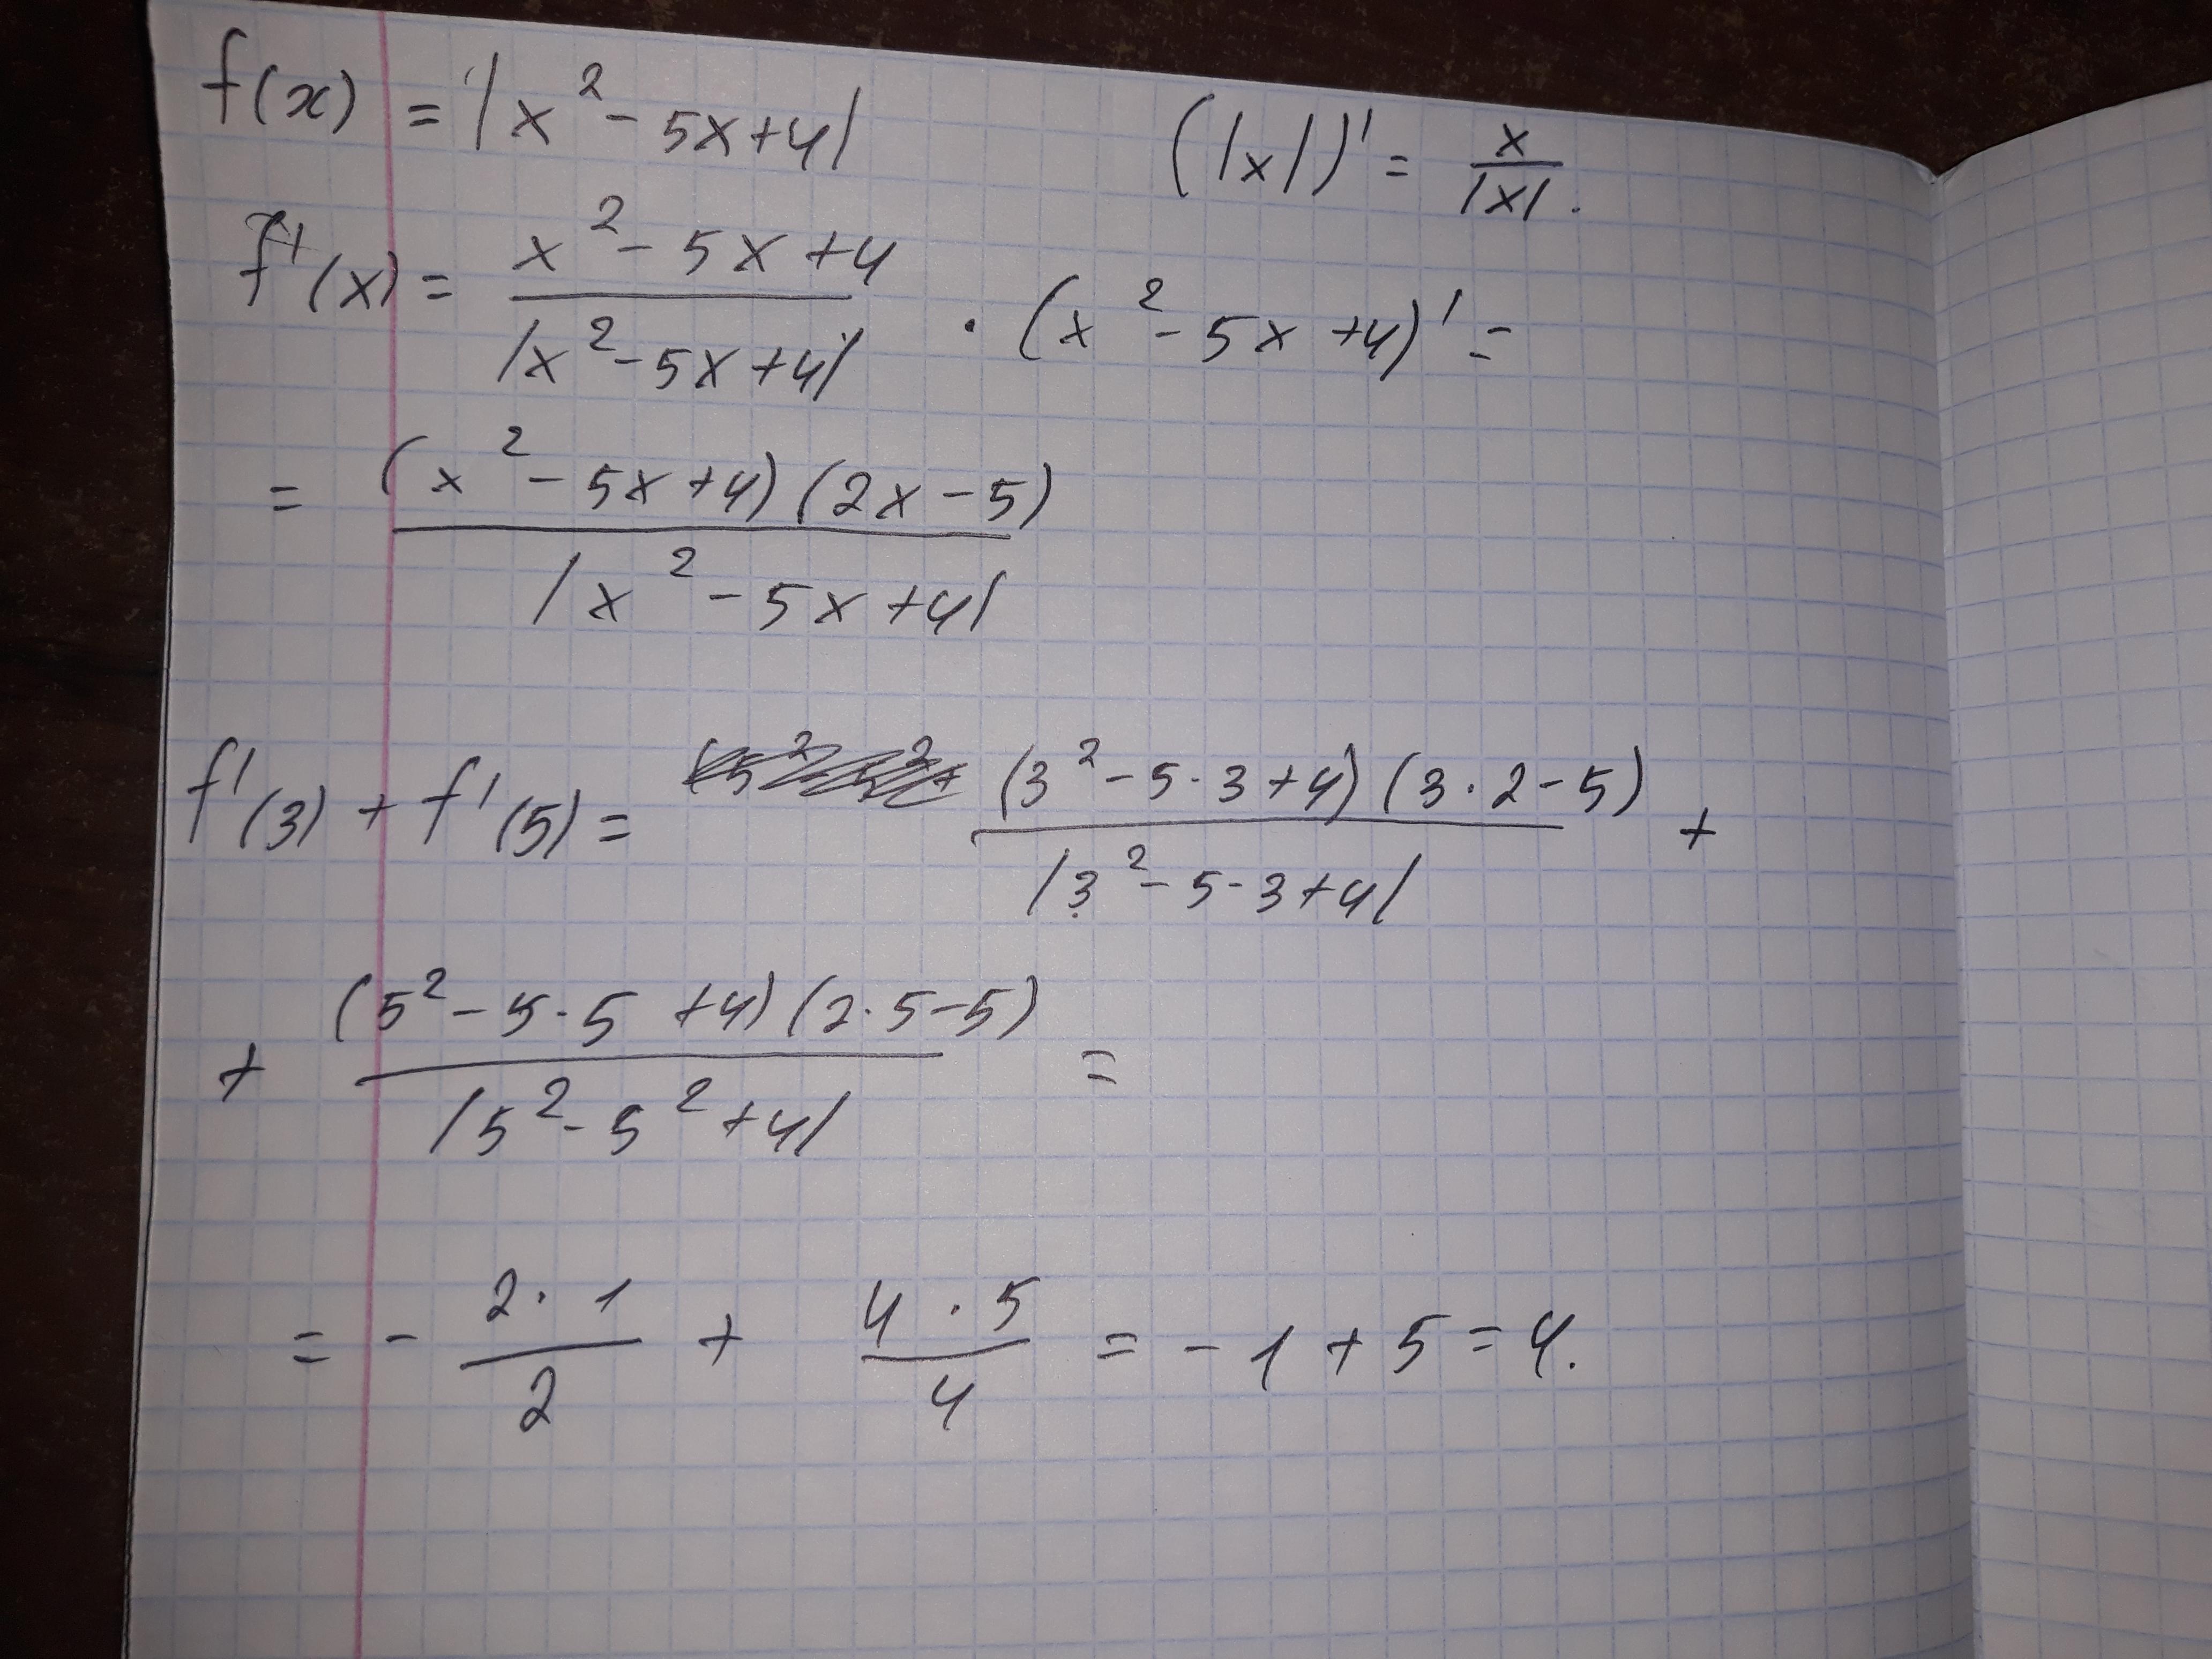 f(x) = |x² - 5x + 4|    (|x|)' = x/|x|.
f'(x) = (x² - 5x + 4)/|x² - 5x + 4| · (x² - 5x + 4)' =
= (x² - 5x + 4)(2x - 5)/|x² - 5x + 4|
f'(3) + f'(5) = (3² - 5·3 + 4)(3·2 - 5)/|3² - 5·3 + 4| +
+ (5² - 5·5 + 4)(2·5 - 5)/|5² - 5² + 4| =
= - 2·1/2 + 4·5/4 = -1 + 5 = 4.